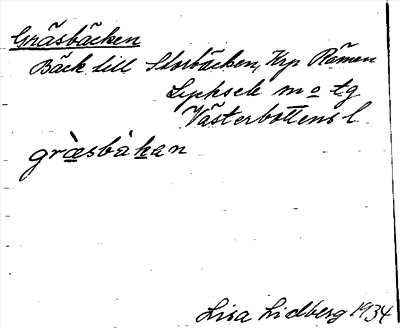 Gräsbäcken
Bäck till Storbäcken, Krp Råmen
Lycksele m o tg
Västerbottens l.
græsbàkan
Lisa Lidberg 1934